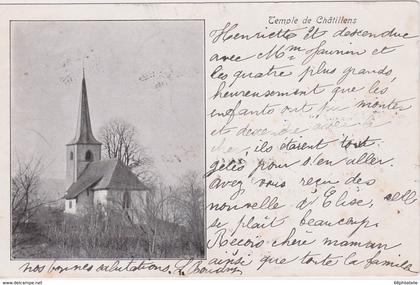 Temple de Châtillens
Henriette et descendue
avec Mme
les quatre plus grands,
heureusement que les
enfants ont pu monter
et
ils étaient tout
gelés pour s'en aller.
Avez vous reçu des
nouvelle d'Elise, elle
se plait beaucoup
Recois chère maman
ainsi que toute la famille
nos bonnes salutations.
© delcampe.net 68philatelie